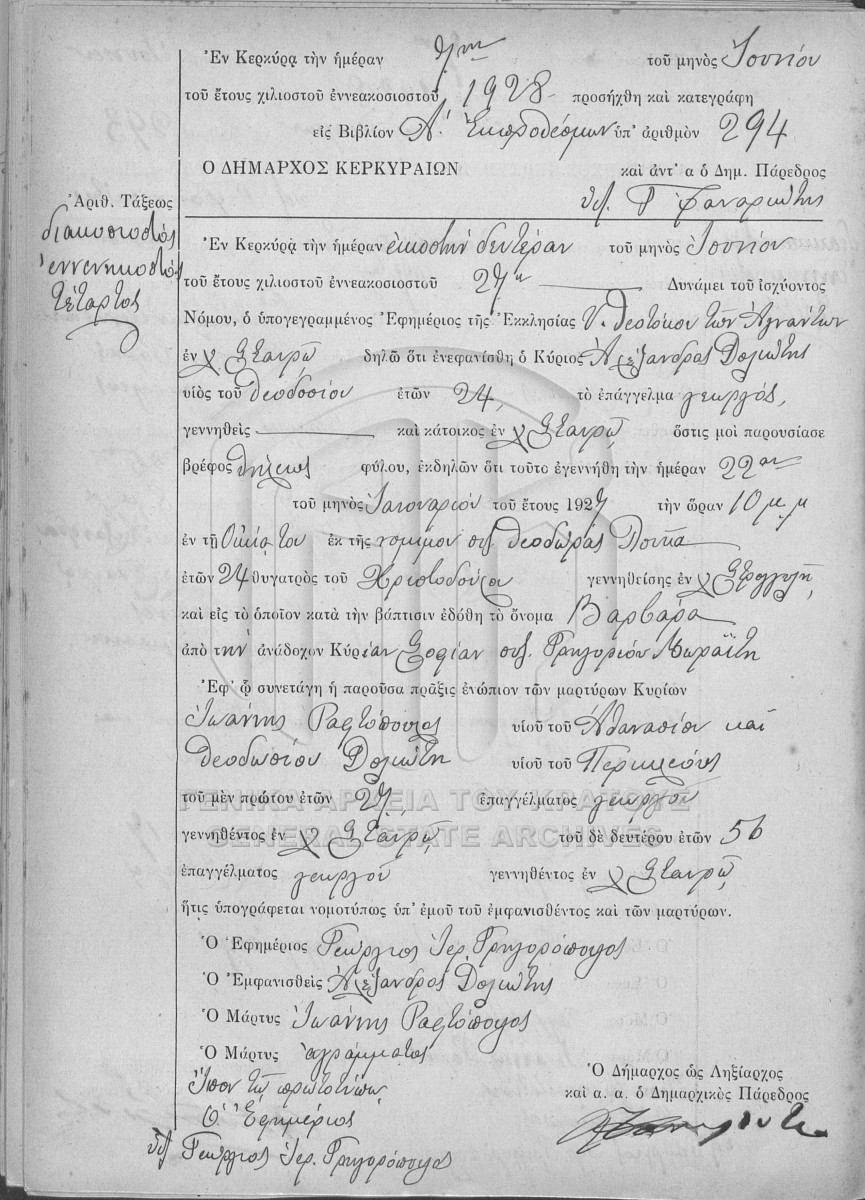 Ἐν Κερκύρᾳ τὴν ἡμέραν 7ην τοῦ μηνὸς Ἰουνίου
τοῦ ἔτους χιλιοστοῦ ἐννεακοσιοστοῦ 1928 προσήχθη καὶ κατεγράφη
εἰς Βιβλίον Α΄ Ἐκπροθέσμων ὑπ' ἀριθμὸν 294
Ο ΔΗΜΑΡΧΟΣ ΚΕΡΚΥΡΑΙΩΝ καὶ ἀντ' α ὁ Δημ. Πάρεδρος
Ἀριθ. Τάξεως
διακοσιοστὸς
ἐννενηκοστὸς
τέταρτος
Ἐν Κερκύρᾳ τὴν ἡμέραν εἰκοστὴν δευτέραν τοῦ μηνὸς Ἰουνίου
τοῦ ἔτους χιλιοστοῦ ἐννεακοσιοστοῦ 27ου Δυνάμει τοῦ ἰσχύοντος
Νόμου, ὁ ὑπογεγραμμένος Ἐφημέριος τῆς Ἐκκλησίας Υ. Θεοτόκου τῶν Ἁγνάντων
ἐν χ Σταυρῷ δηλῶ ὅτι ἐνεφανίσθη ὁ Κύριος Ἀλέξανδρος Δολιώτης
υἱὸς τοῦ Θεοδοσίου ἐτῶν 24, τὸ ἐπάγγελμα γεωργός,
γεννηθεὶς καὶ κάτοικος ἐν χ Σταυρῷ ὅστις μοὶ παρουσίασε
βρέφος θήλεως φύλου, ἐκδηλῶν ὅτι τοῦτο ἐγεννήθη τὴν ἡμέραν 22αν
τοῦ μηνὸς Ἰανουαρίου τοῦ ἔτους 1927 τὴν ὥραν 10 μ.μ
ἐν τῇ Οἰκίᾳ του ἐκ τῆς νομίμου συζ Θεοδώρας
ἐτῶν 24 θυγατρὸς τοῦ Χριστοδούλου γεννηθείσης ἐν χ Στρογγυλῇ
καὶ εἰς τὸ ὁποῖον κατὰ τὴν βάπτισιν ἐδόθη τὸ ὄνομα Βαρβάρα
ἀπὸ τὴν ἀνάδοχον Κυρίαν Σοφίαν συζ. Γρηγορίου Μωραΐτη
Ἐφ' ᾧ συνετάγη ἡ παροῦσα πρᾶξις ἐνώπιον τῶν μαρτύρων Κυρίων
Ἰωάννης Ραφτόπουλος υἱοῦ τοῦ Ἀθανασίου καὶ
Θεοδωσίου Δολιώτη υἱοῦ τοῦ Περικλέους
τοῦ μὲν πρώτου ἐτῶν 27, ἐπαγγέλματος γεωργοῦ
ΓΕΝΙΚΑ ΑΡΧΕΙΑ ΤΟΥ ΚΡΑΤΟΥΣ
γεννηθέντος ἐν χ Σταυρῷ τοῦ δὲ δευτέρου ἐτῶν 56
GENERAL STATE ARCHIVES
ἐπαγγέλματος γεωργοῦ γεννηθέντος ἐν χ Σταυρῷ
ἥτις ὑπογράφεται νομοτύπως ὑπ' ἐμοῦ τοῦ ἐμφανισθέντος καὶ τῶν μαρτύρων.
Ὁ Ἐφημέριος Γεώργιος Ἱερ. Γρηγορόπουλος
Ὁ Ἐμφανισθεὶς Ἀλέξανδρος Δολιώτης
Ὁ Μάρτυς Ἰωάννης Ραφτόπουλος
Ὁ Μάρτυς ἀγράμματος
Ὁ Δήμαρχος ὡς Ληξίαρχος
καὶ α. α. ὁ Δημαρχικὸς Πάρεδρος
Ὁ Ἐφημέριος
Γεώργιος Ἱερ. Γρηγορόπουλος